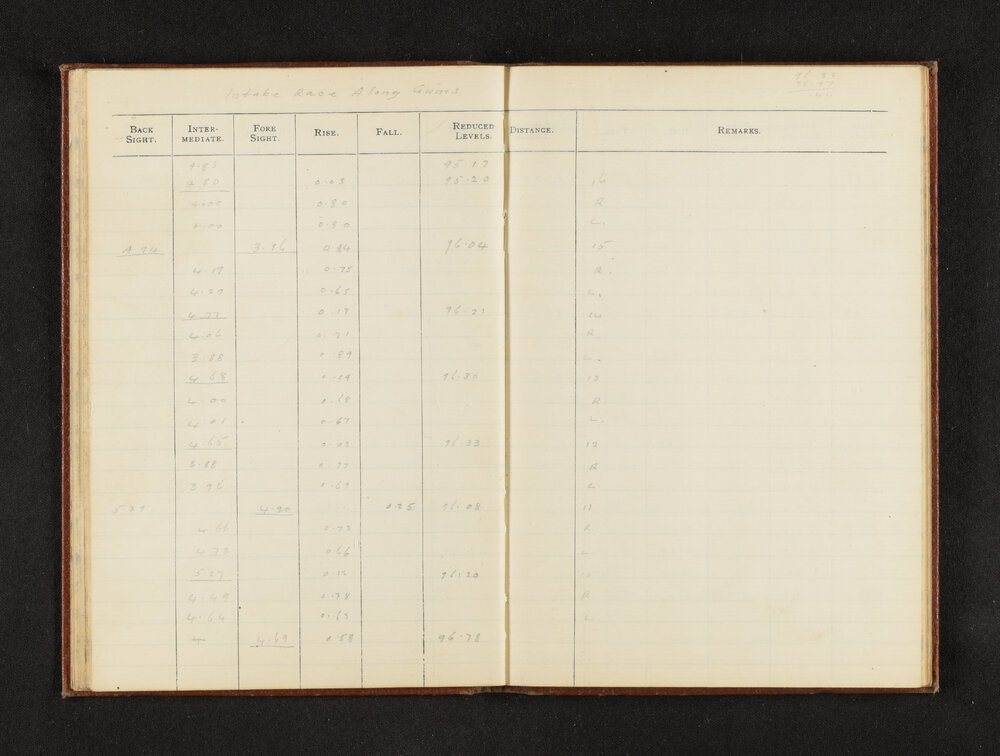 Intake Race Along Gums
BACK SIGHT. INTER-MEDIATE. FORE SIGHT. RISE. FALL. REDUCED LEVELS. DISTANCE. REMARKS.
4.83 95.17
4.80 0.03 95.20 16
4.00 0.80 R
4.00 0.80 L.
4.94 3.96 0.84 96.04 15
4.19 0.75 R.
4.29 0.65 L.
4.77 0.17 96.21 14
4.06 0.71 R.
3.88 0.89 L.
4.68 0.09 96.30 13
4.00 0.68 R.
4.01 0.67 L.
4.65 0.03 96.33 12
3.88 0.77 R
3.96 0.69 L
5.39 4.90 0.25 96.08 11
4.66 0.73 R.
4.73 0.66 L
5.27 0.12 96.20 10
4.49 0.78 R
4.64 0.63 L.
4.69 0.58 96.78